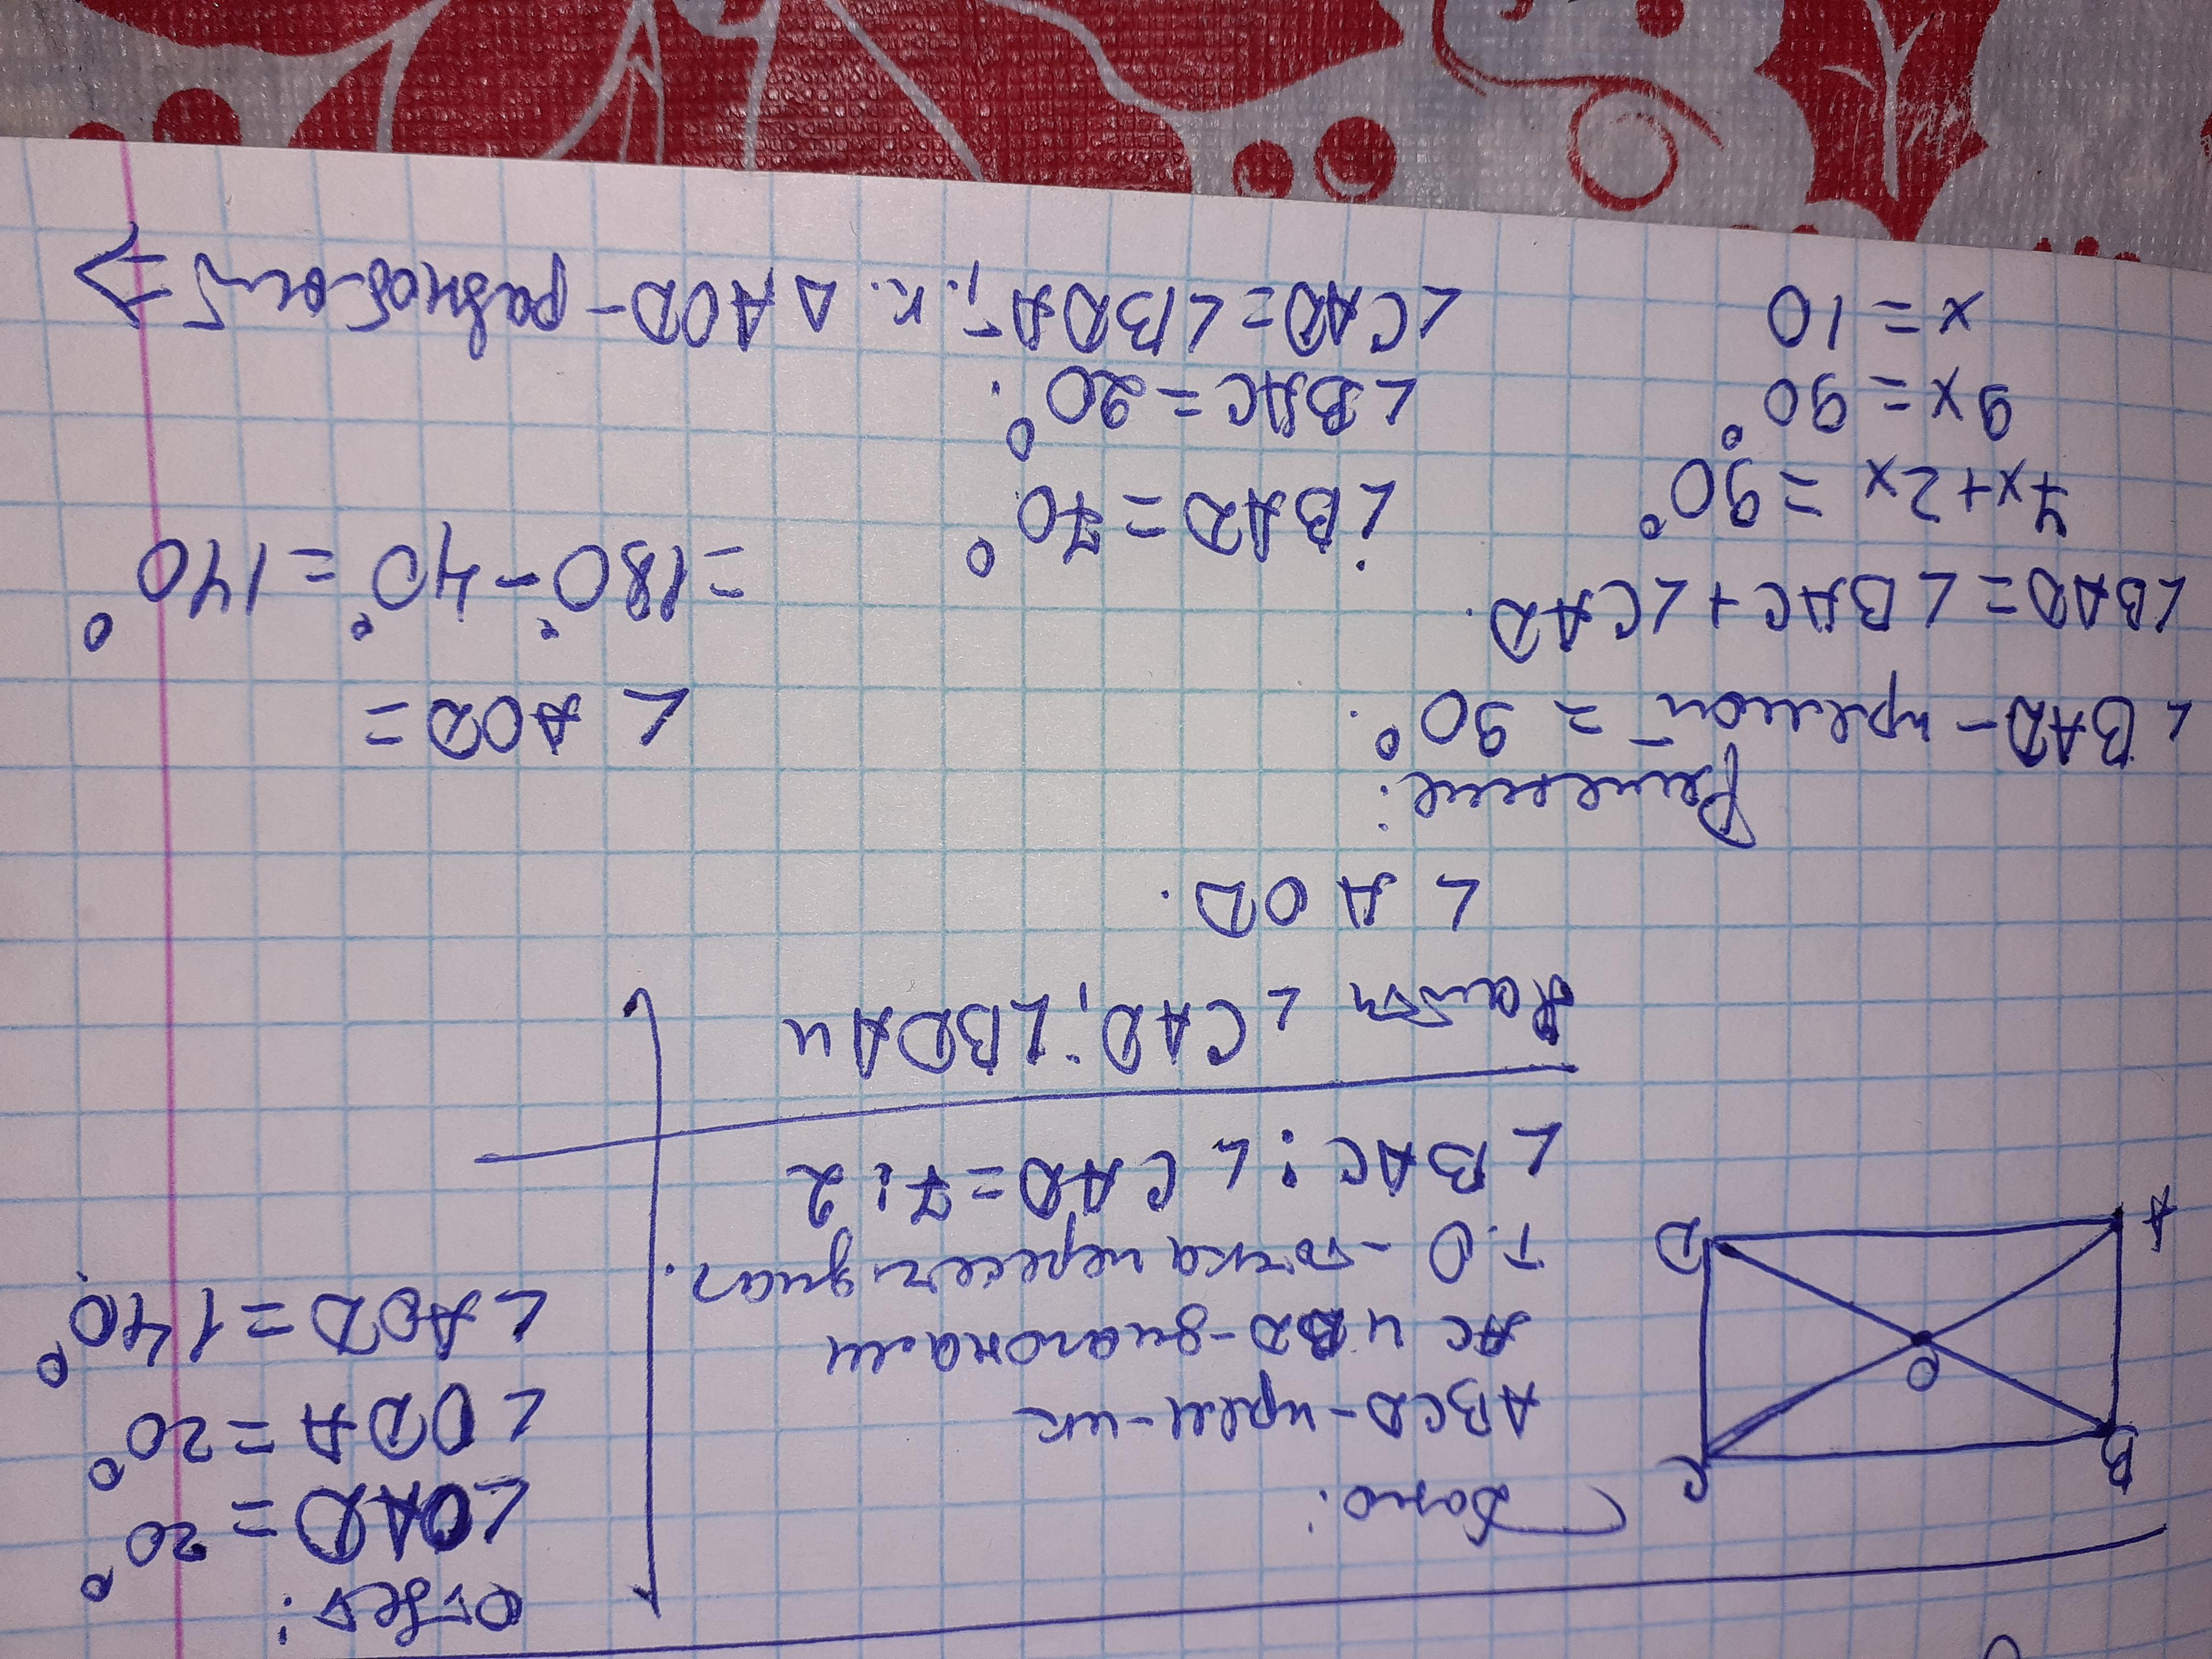 Дано:
ABCD - прям-ик
AC и BD - диагонали
т.O - точка пересеч диаг.
∠BAC : ∠CAD = 7:2
Найти ∠CAD; ∠BDA и
∠AOD.
B
C
O
A
D
Решение:
∠BAD - прямой = 90°.
∠BAD = ∠BAC + ∠CAD.
7x + 2x = 90°
9x = 90°
x = 10
∠BAD = 70°
∠BAC = 20°.
∠CAD = ∠BDA, т.к. △AOD - равноб-ый ⇒
∠AOD =
= 180° - 40° = 140°
Ответ:
∠OAD = 20°
∠ODA = 20°
∠AOD = 140°.